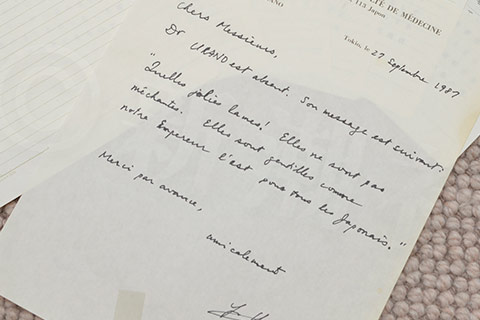 TÉ DE MÉDECINE
113 Japon
Tokio, le 27 Septembre 1987
Chers Messieurs,
Dr URANO est absent. Son message est suivant:
"Quelles jolies lames! Elles ne sont pas
méchantes. Elles sont gentilles comme
notre Empereur l'est pour tous les Japonais."
Merci par avance,
amicalement